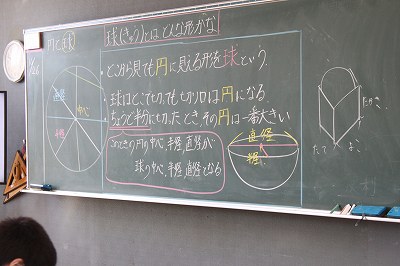 円と球
球(きゅう)とはどんな形かな
・どこから見ても円に見える形を球という。
・球はどこで切っても切り口は円になる
ちょうど半分に切ったとき、その円は一番大きい
このときの円の中心、半径、直径が
球の中心、半径、直径となる
直径
中心
半径
直径
半径
たかさ
たて
よこ